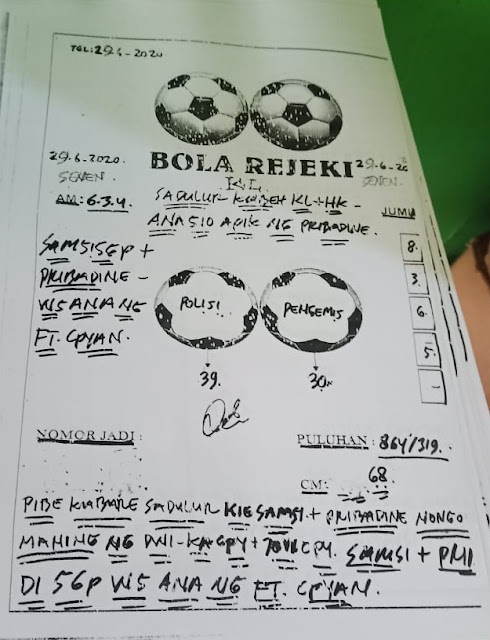 TGL: 29.6-2020
29.6-2020. BOLA REJEKI 29.6-20
SEVEN.
K.L.
AM: 6.3.4.
SADULUR KL+HK-
JUMU
ANA SIO APIK NG PRIBADINE.
SAMSI SGP +
PRIBADINE -
WS ANA NG
FT. CPYAN.
8.
3.
6.
5.
POLISI
PENGEMIS
39.
30
NOMOR JADI :
PULUHAN : 864/319.
CM: 68.
PIBE KABARE SADULUR KIE SAMSI + PRIBADINE NONGO
MAHING NG CPY. SAMSI +
DI SGP WS ANA NG FT. CPYAN.